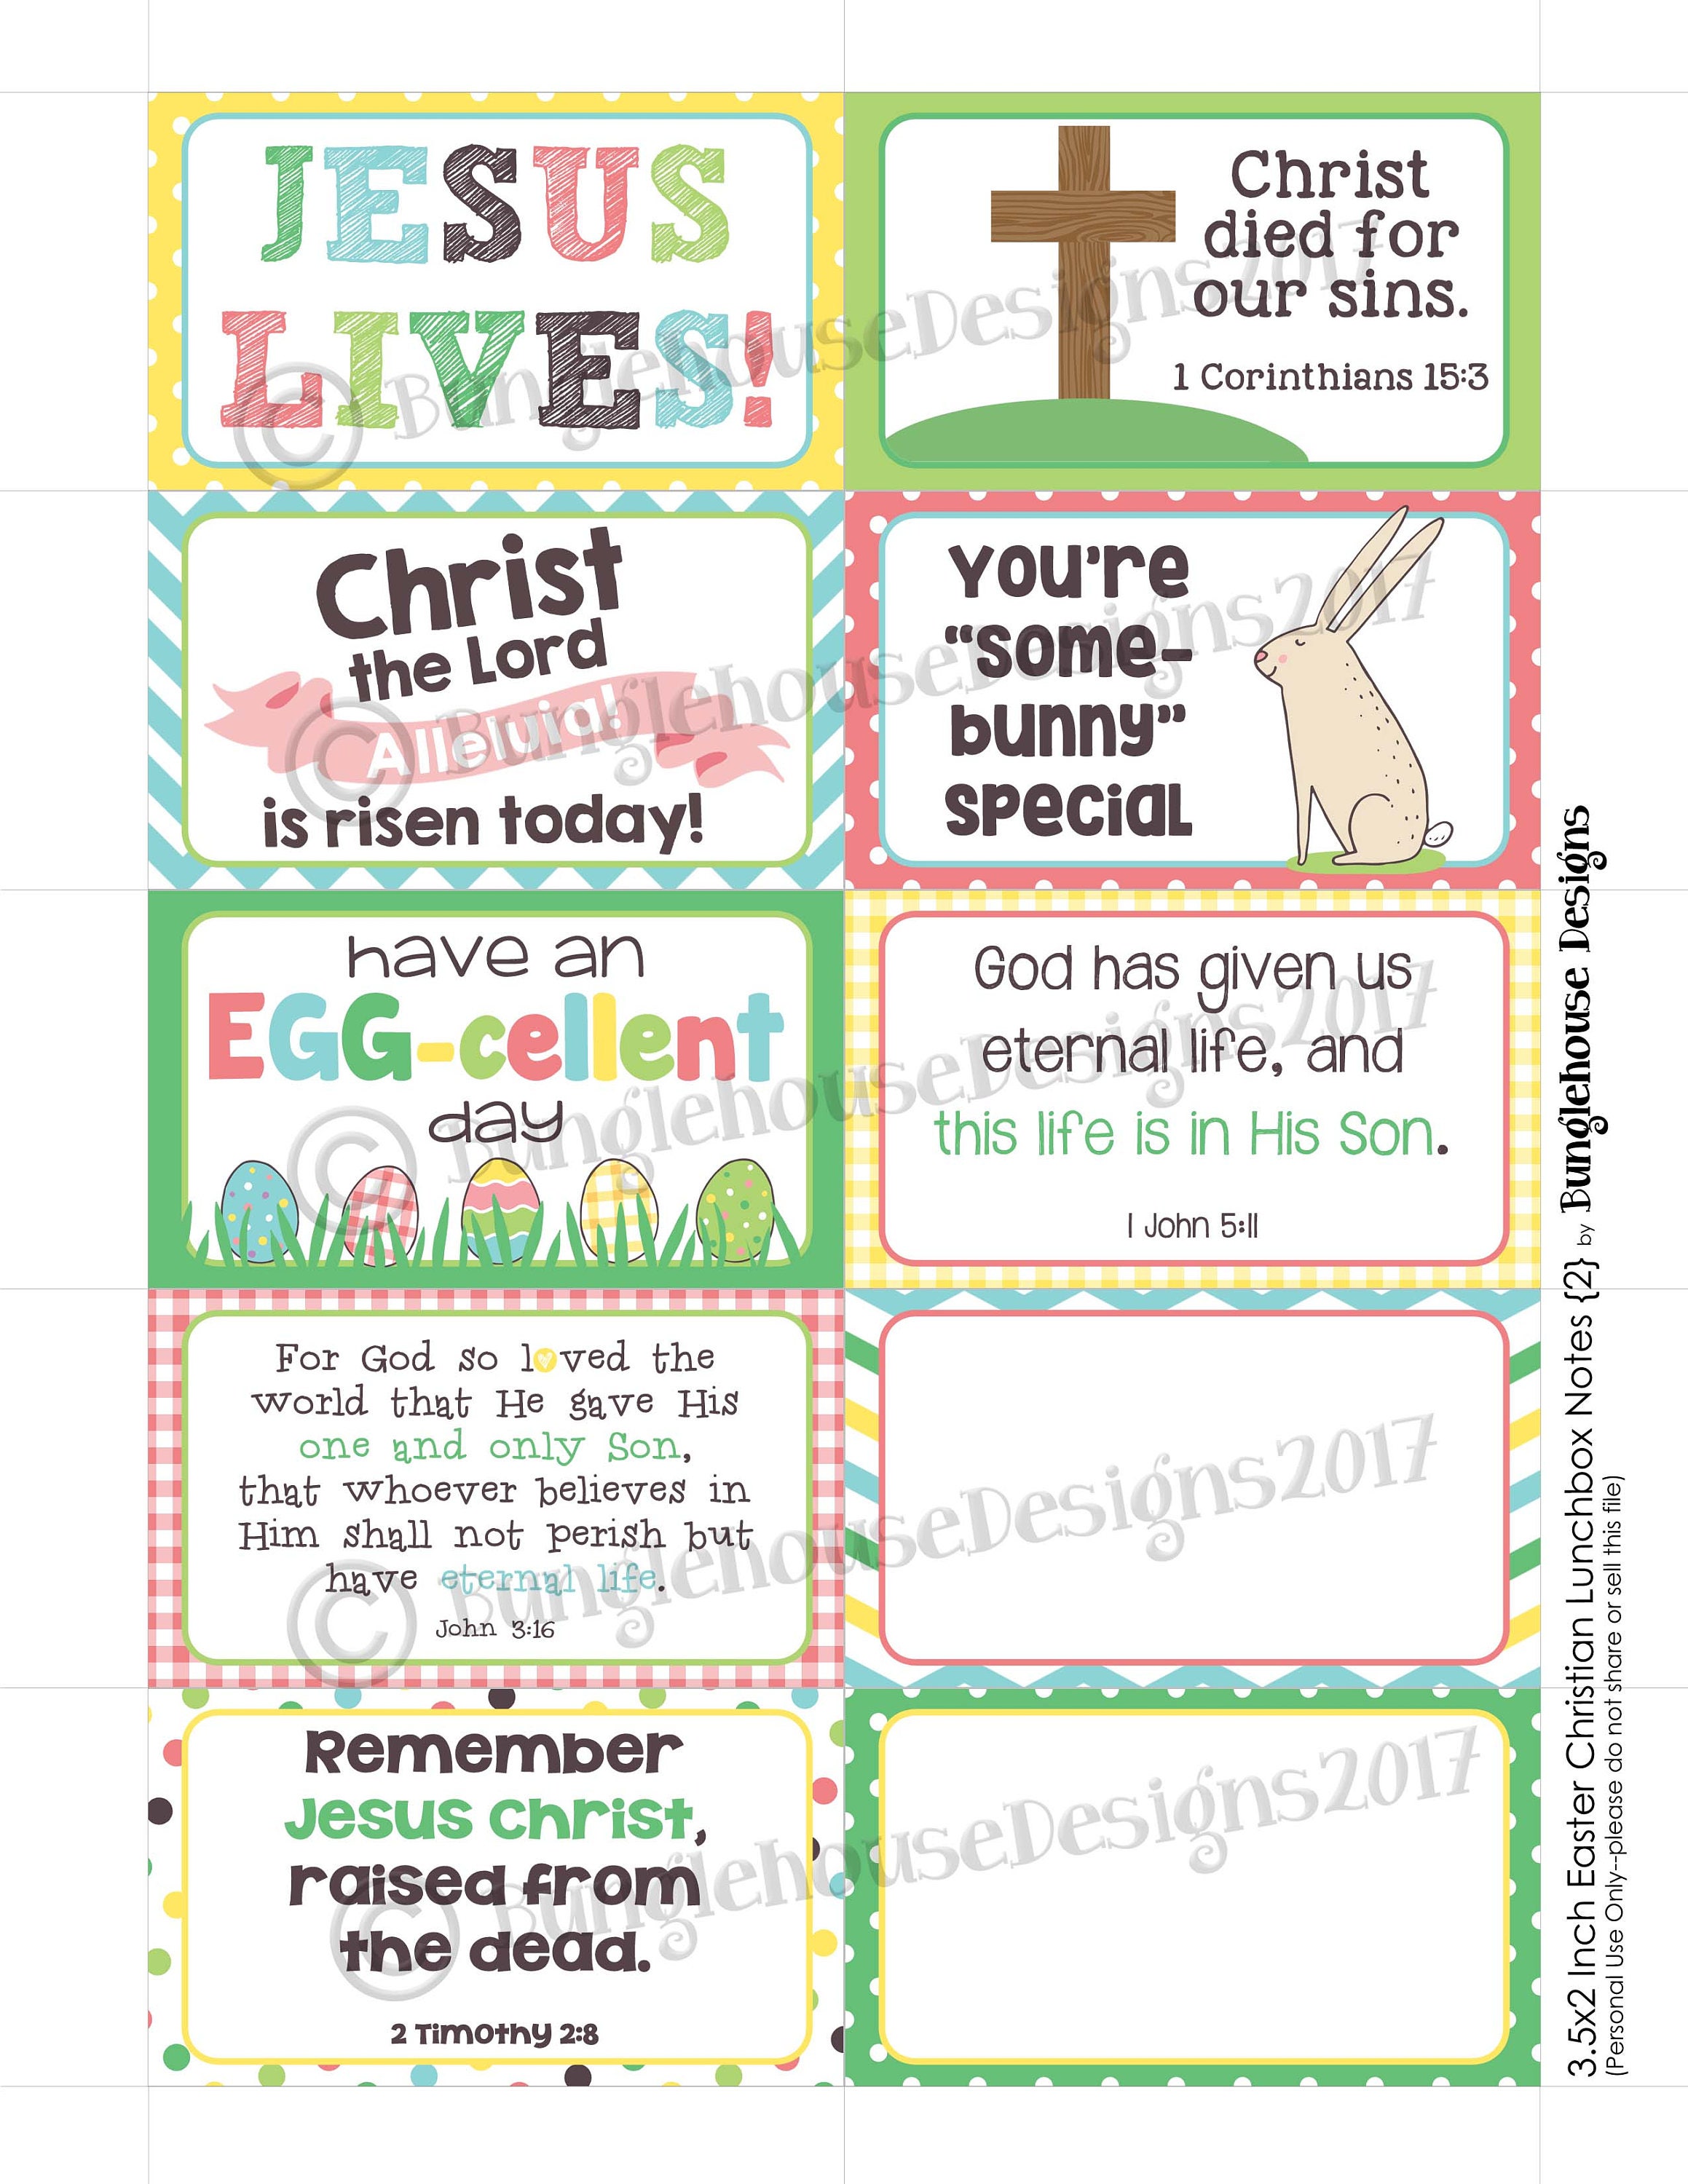 JESUS
LIVES!
Christ
died for
our sins.
1 Corinthians 15:3
Christ
the Lord
Alleluia!
is risen today!
You're
"some-
bunny"
special
have an
EGG-cellent
day
God has given us
eternal life, and
this life is in His Son.
1 John 5:11
For God so loved the
world that He gave His
one and only Son,
that whoever believes in
Him shall not perish but
have eternal life.
John 3:16
Remember
Jesus Christ,
raised from
the dead.
2 Timothy 2:8
© BunglehouseDesigns2017
© BunglehouseDesigns2017
© BunglehouseDesigns2017
© BunglehouseDesigns2017
© BunglehouseDesigns2017
3.5x2 Inch Easter Christian Lunchbox Notes {2} by Bunglehouse Designs
(Personal Use Only--please do not share or sell this file)